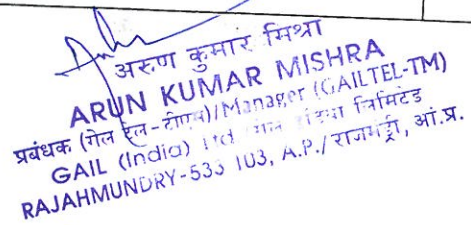 अरुण कुमार मिश्रा
ARUN KUMAR MISHRA
प्रबंधक (गेल टेल-टीएम)/Manager (GAILTEL-TM)
GAIL (India) Ltd गेल इंडिया लिमिटेड
RAJAHMUNDRY-533 103, A.P./राजमंड्री, आं.प्र.